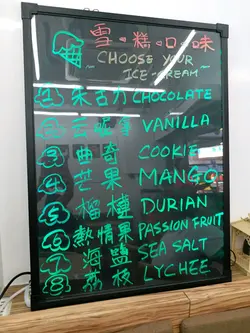 雪糕口味
~ CHOOSE YOUR ICE-CREAM ~
① 朱古力 CHOCOLATE
② 云呢拿 VANILLA
③ 曲奇 COOKIE
④ 芒果 MANGO
⑤ 榴槤 DURIAN
⑥ 熱情果 PASSION FRUIT
⑦ 海鹽 SEA SALT
⑧ 荔枝 LYCHEE